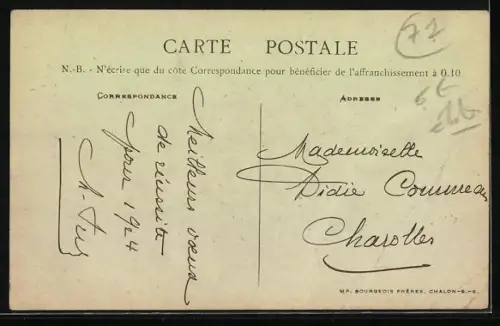 CARTE POSTALE
N.-B. - N'écrire que du côte Correspondance pour bénéficier de l'affranchissement à 0.10
CORRESPONDANCE
Meilleurs vœux
de réussite
pour 1924
ADRESSE
Mademoiselle
Didie Commeau
Charolles
IMP. BOURGEOIS FRÈRES, CHALON-S.-S.
77